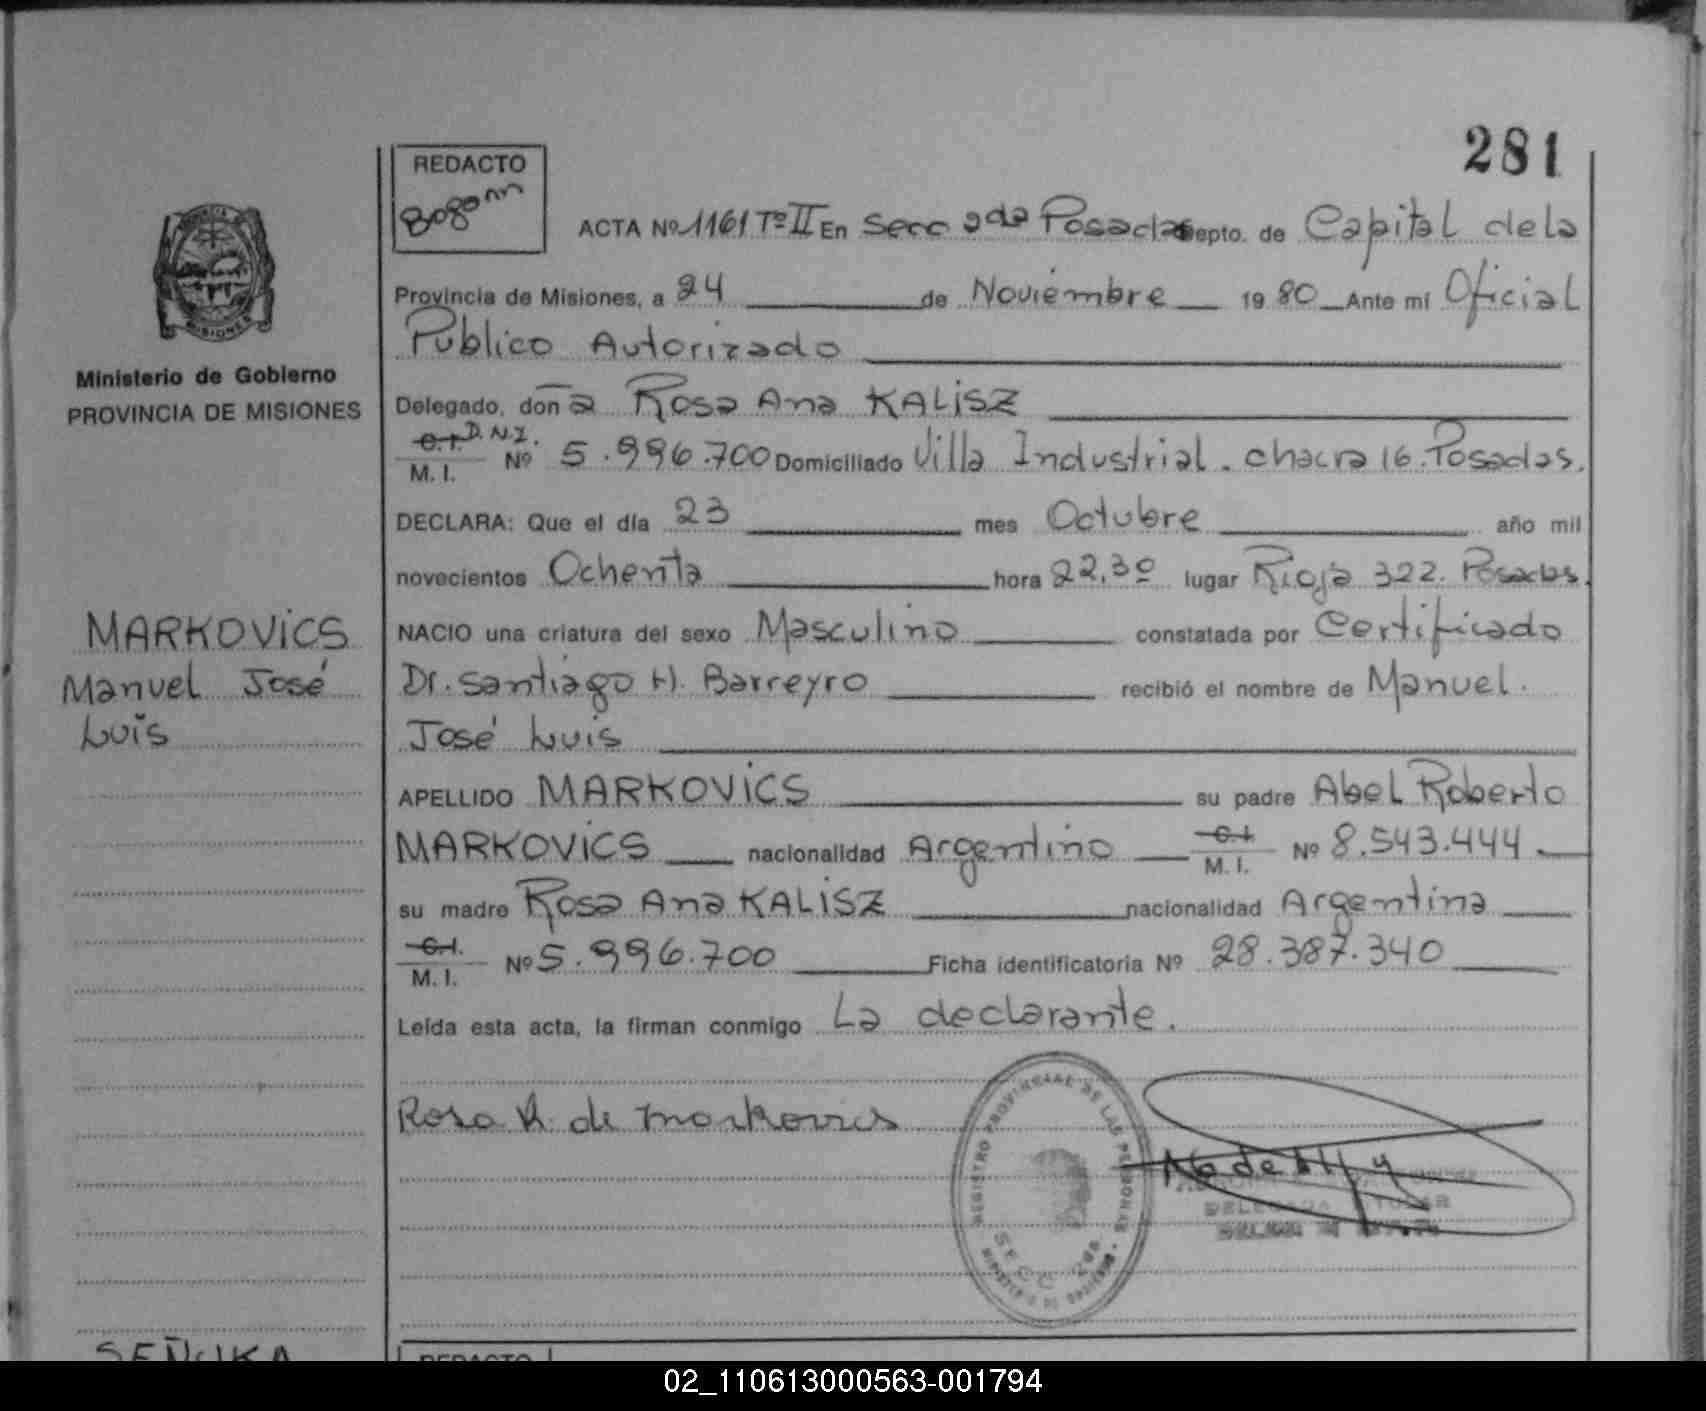 281
REDACTO
ACTA Nº 1161 Tº II En Secc 2da Posadas Depto. de Capital de la
Provincia de Misiones, a 24 de Noviembre 1980 Ante mi Oficial
Público Autorizado
Ministerio de Gobierno
PROVINCIA DE MISIONES
Delegado, don a Rosa Ana KALISZ
C.I. D.N.I.
M. I. Nº 5.996.700 Domiciliado Villa Industrial. chacra 16. Posadas.
DECLARA: Que el día 23 mes Octubre año mil
novecientos Ochenta hora 22,30 lugar Rioja 322. Posadas.
MARKOVICS
Manuel José
Luis
NACIO una criatura del sexo Masculino constatada por Certificado
Dr. Santiago H. Barreyro recibió el nombre de Manuel.
José Luis
APELLIDO MARKOVICS su padre Abel Roberto
MARKOVICS nacionalidad Argentino C.I. M. I. Nº 8.543.444
su madre Rosa Ana KALISZ nacionalidad Argentina
C.I. M. I. Nº 5.996.700 Ficha identificatoria Nº 28.387.340
Leída esta acta, la firman conmigo La declarante.
Rosa K. de Markovics
REGISTRO PROVINCIAL DE LAS PERSONAS
SECC 2da
SEÑUKA
REDACTO
02_110613000563-001794